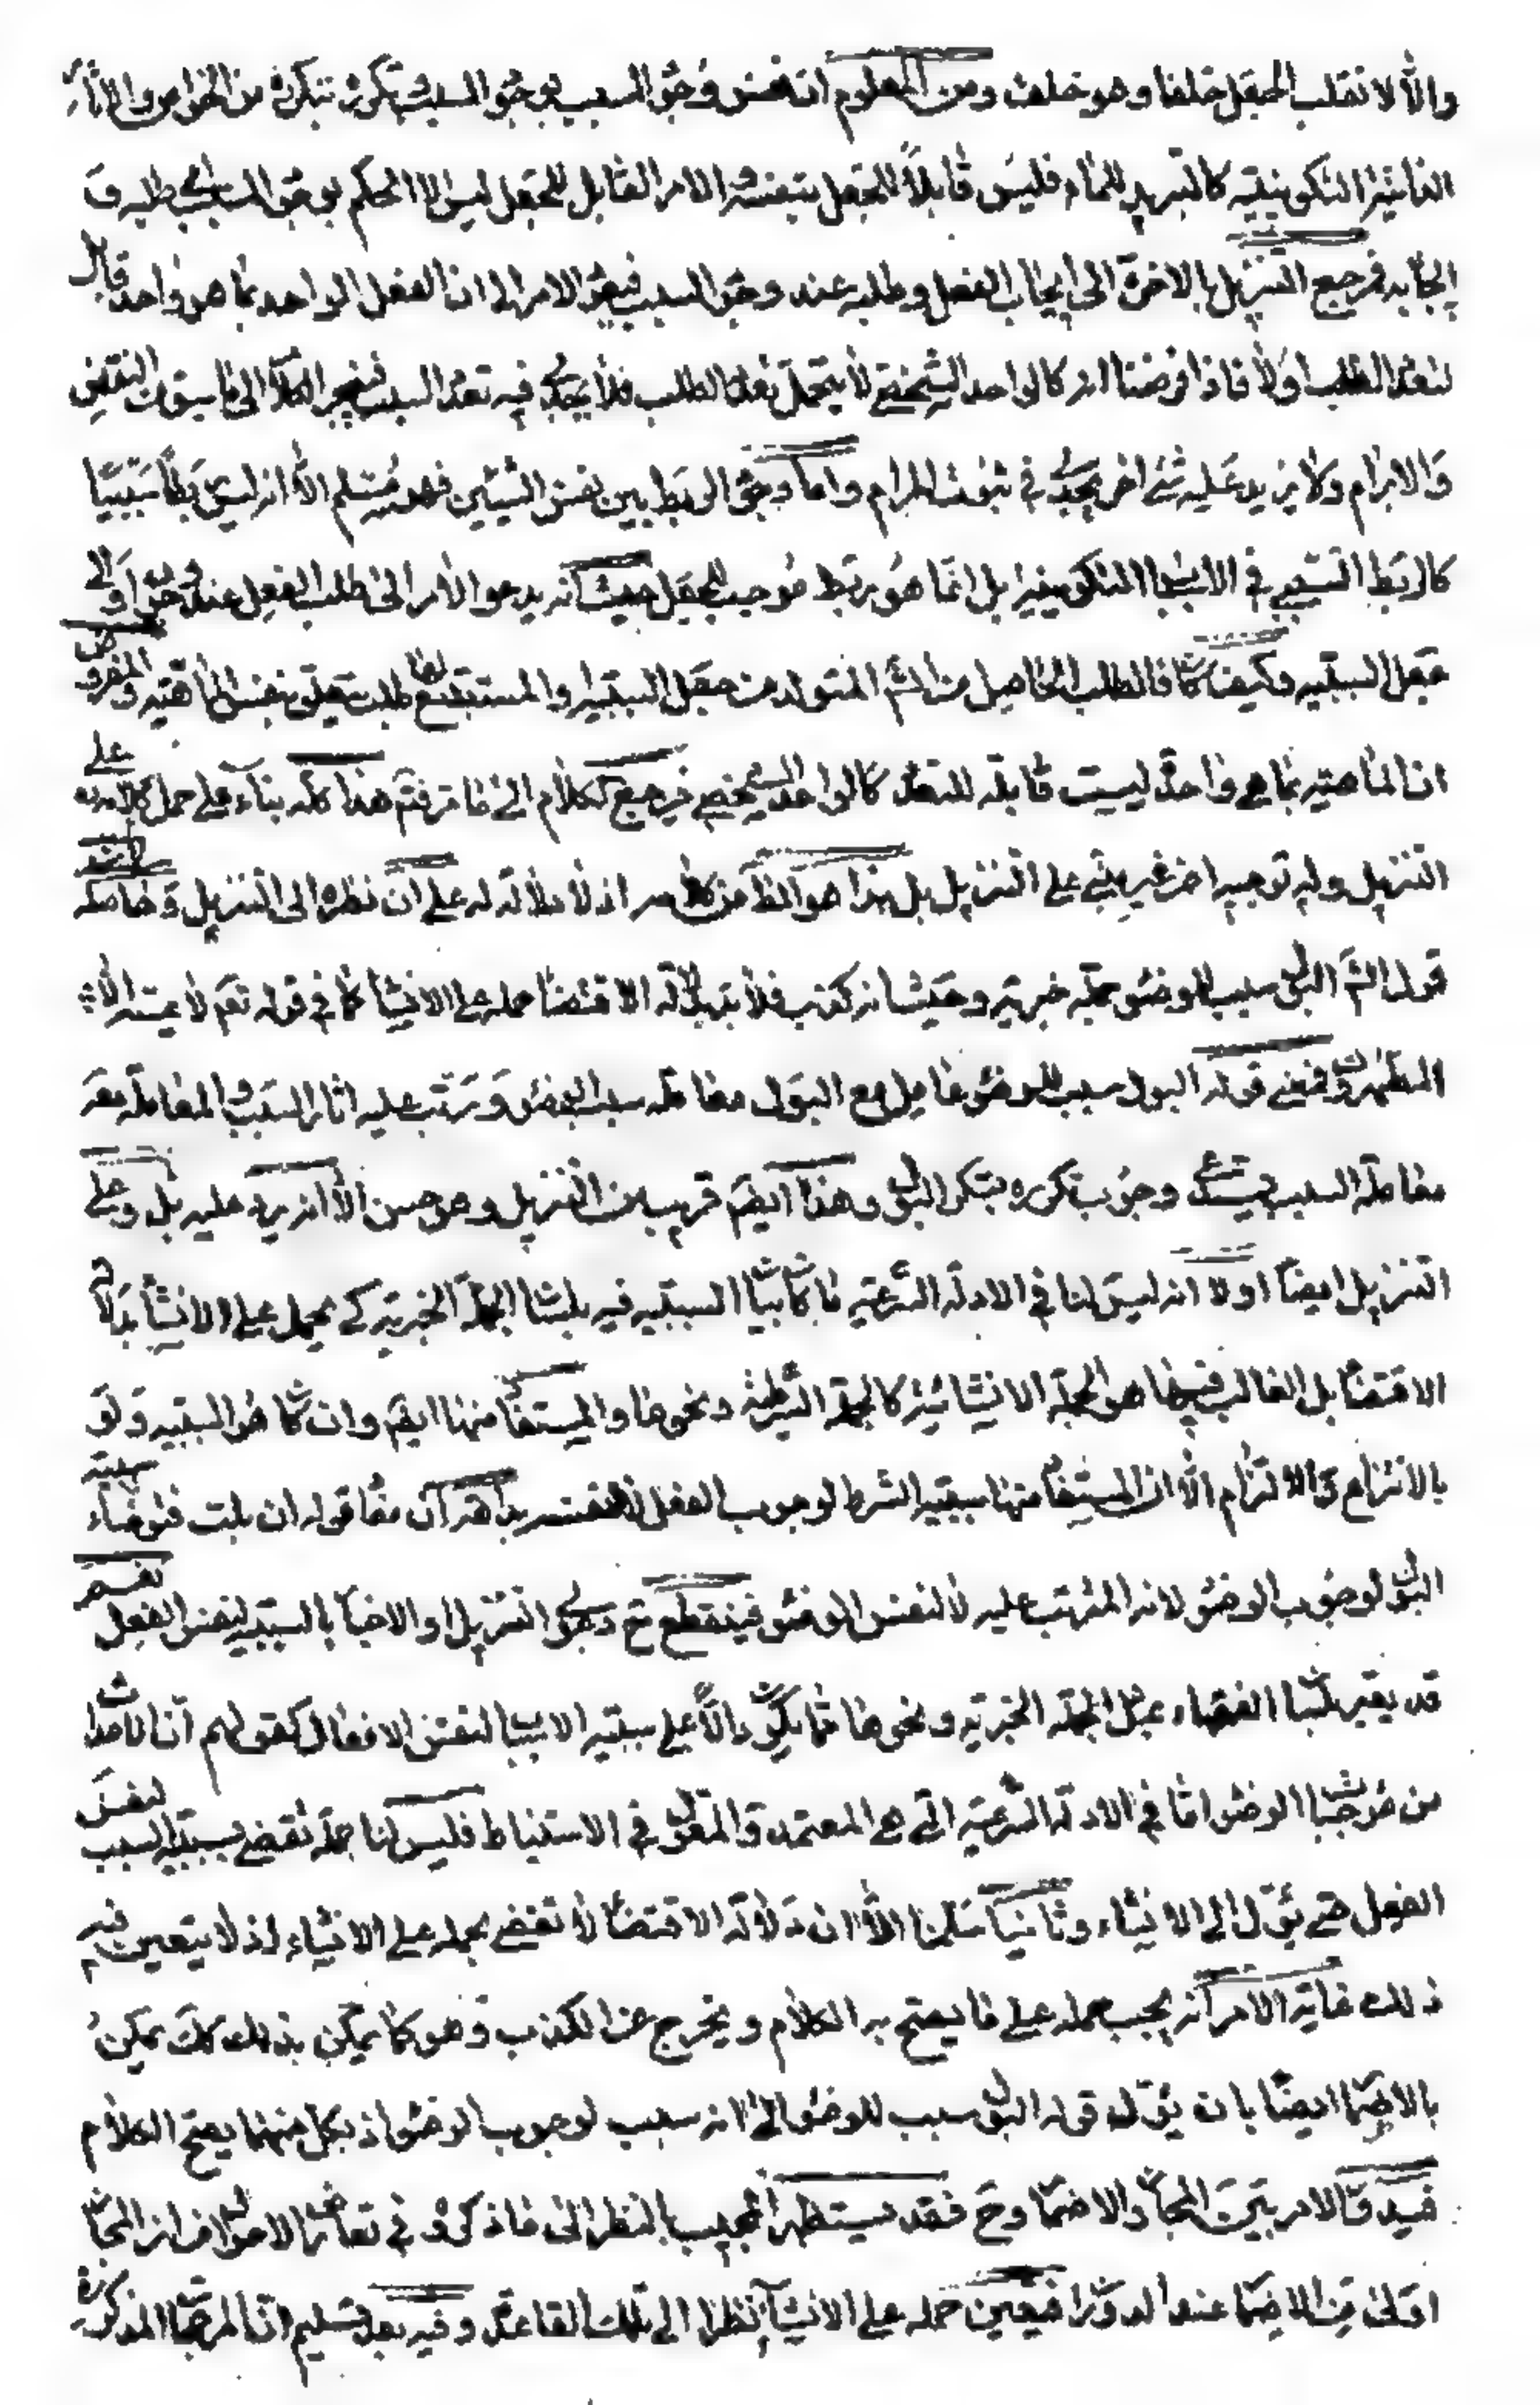 والّا لانقلب الجعل خلفا وهو خلف ومن المعلوم ان نفس وجود السبب بوجود السبب وتكرره بتكرره من الخواص والاثار
الغائيّة التكوينيّة كالتبريد للماء فليس قابلاً للجعل بنفسه والامر القابل للجعل ليس الا الحكم بوجود المسبب طلبه و
ايجابه فرجع التنزيل بالاخرة الى ايجاب الفعل وطلبه عند وجود السبب فيعود الامر الى ان الفعل الواحد بما هو واحد قابل
لتعدد الطلب اولا فاذا فرضنا انه كالواحد الشخصي لا يتحمل تعدد الطلب فلا يجدي فيه تعدد السبب فينجر الكلام الى ما سبق من النقض
والابرام ولا يزيد عليه شئ اخر يجدى في ثبوت المرام واما وجود الربط بين نفس الشيئين فهو مسلم الّا انه ليس ربطاً سببيّا
كالربط السببي في الاسباب التكوينية بل انما هو ربط موجب للجعل حيث انه يدعو الأمر الى طلب الفعل عنده وجود او الى
جعل السببيه وكيف كان فالطلب الحاصل من الشرع المتولد من جعل السببية والمستتبع لها طلب يتعلق بنفس الماهية والمفروض
ان الماهية بما هي واحدة ليست قابلة للتعدد كالواحد الشخصي فيرجع الكلام الى ما مر فتم هذا كله بناء على حمل كلامه على
التنزيل وله توجيه اخر غير مبني على التنزيل بل هذا هو الظاهر من كلامه اذ لا دلالة له على ان نظره الى التنزيل وحاصله انه
قول الشارع البول سبب للوضوء جملة خبرية وحيث انه كذب فلا بد بدلالة الاقتضاء حمله على الانشاء كما في قوله نعم لا يمسه الا
المطهرون فمعنى قوله البول سبب للوضوء عامل مع البول معاملة سبب الوضوء ورتب عليه اثار السبب والمعاملة معه
معاملة السبب يستدعي وجوب تكرره بتكرر البول وهذا ايضا قريب من التنزيل وهو حسن الّا انه يرد عليه بل وعلى
التنزيل ايضاً اولا انه ليس لنا في الادلة الشرعية ما كان بيان السببية فيه بلسان الجملة الخبرية كي يحمل على الانشاء بدلالة
الاقتضاء بل الغالب فيها هو الجملة الانشائية كالجملة الشرطية ونحوها والمستفاد منها ايضا وان كان هو السببية ولو
بالانتزاع والالتزام الّا ان المستفاد منها سببية الشرط لوجوب الفعل لا لنفسه بداهة ان مفاد قوله ان بلت فتوضأ سببية
البول لوجوب الوضوء لانه المترتب عليه لا لنفس الوضوء فينقطع ح دعوى التنزيل او الاخبار بالسببية لنفس الفعل نعم
قد يقع بلسان الفقهاء مثل الجملة الخبرية ونحوها مما يكون دالاً على سببية الاسباب لنفس الافعال كقولهم ان الاحداث
من موجبات الوضوء اما في الادلة الشرعية التي هي المعتمدة والمعول في الاستنباط فليس لنا جملة تقضي بسببية السبب لنفس
الفعل حتى يؤل الى الانشاء وثانياً سلمنا الّا ان دلالة الاقتضاء لا تقضي بحمله على الانشاء اذ لا يتعين فيه
ذلك غاية الامر انه يجب حمله على ما يصح به الكلام ويخرج عن الكذب وهو كما يمكن بذلك كك يمكن
بالاضمار ايضاً بان يؤل قوله البول سبب للوضوء الى انه سبب لوجوب الوضوء اذ بكل منهما يصح الكلام
فيدور الامر بين المجاز والاضمار وح فقد يستظهر المجيب بالنظر الى ما ذكروه في تعارض الاحوال من ان المجاز
اولى من الاضمار عند الدوران فيتعين حمله على الانشاء نظرا الى تلك القاعدة وفيه بعد تسليم ان المرجحات المذكورة